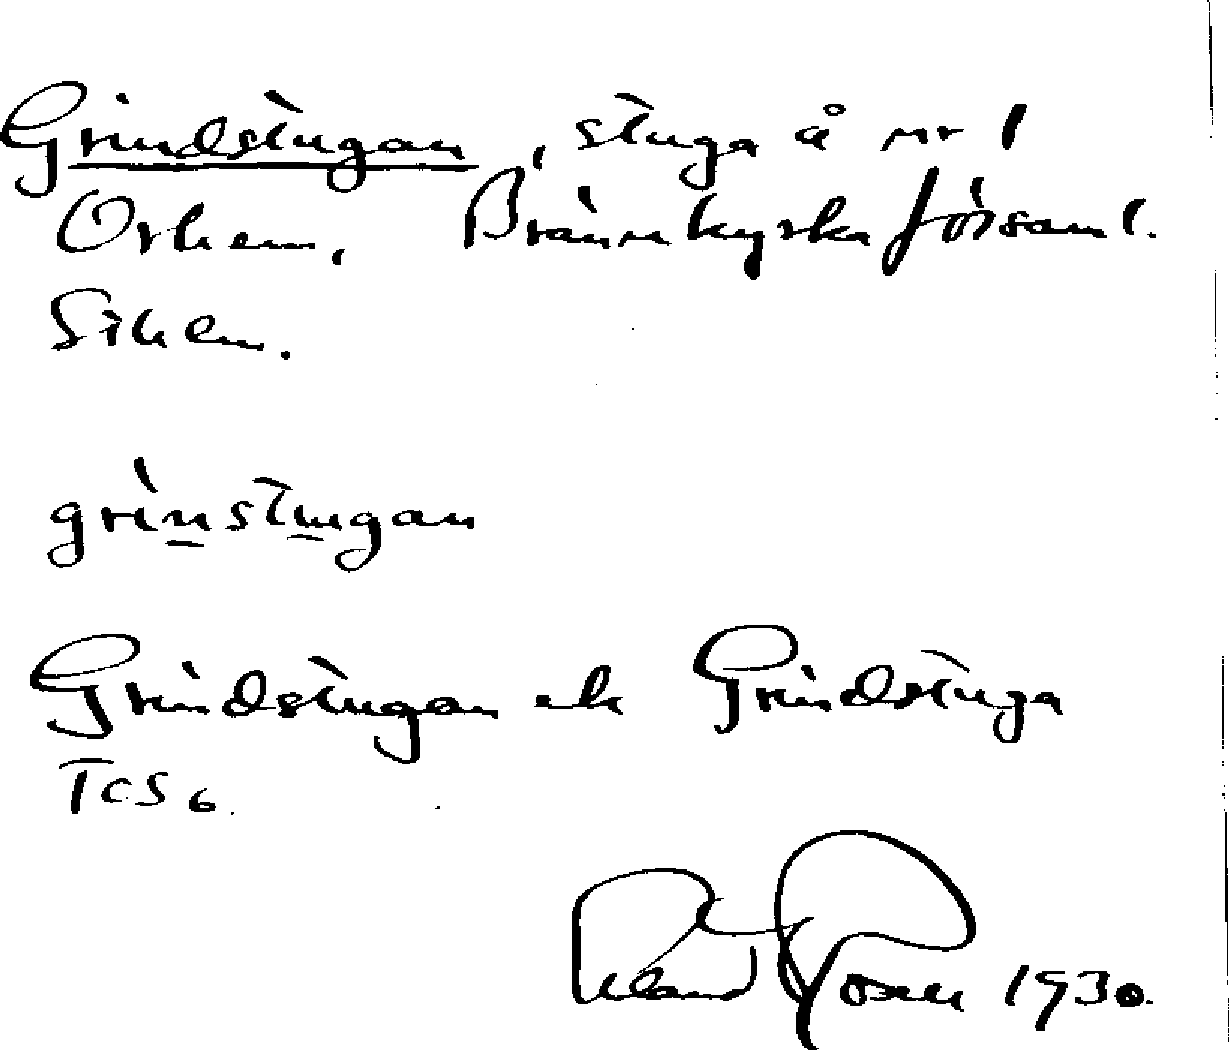 Grindstugan, stuga å nr 1
Orhem. Brännkyrka församl.
Sthlm.
grinstugan
Grindstugan el. Grindstuga
TCS 6.
Rosen 1930.